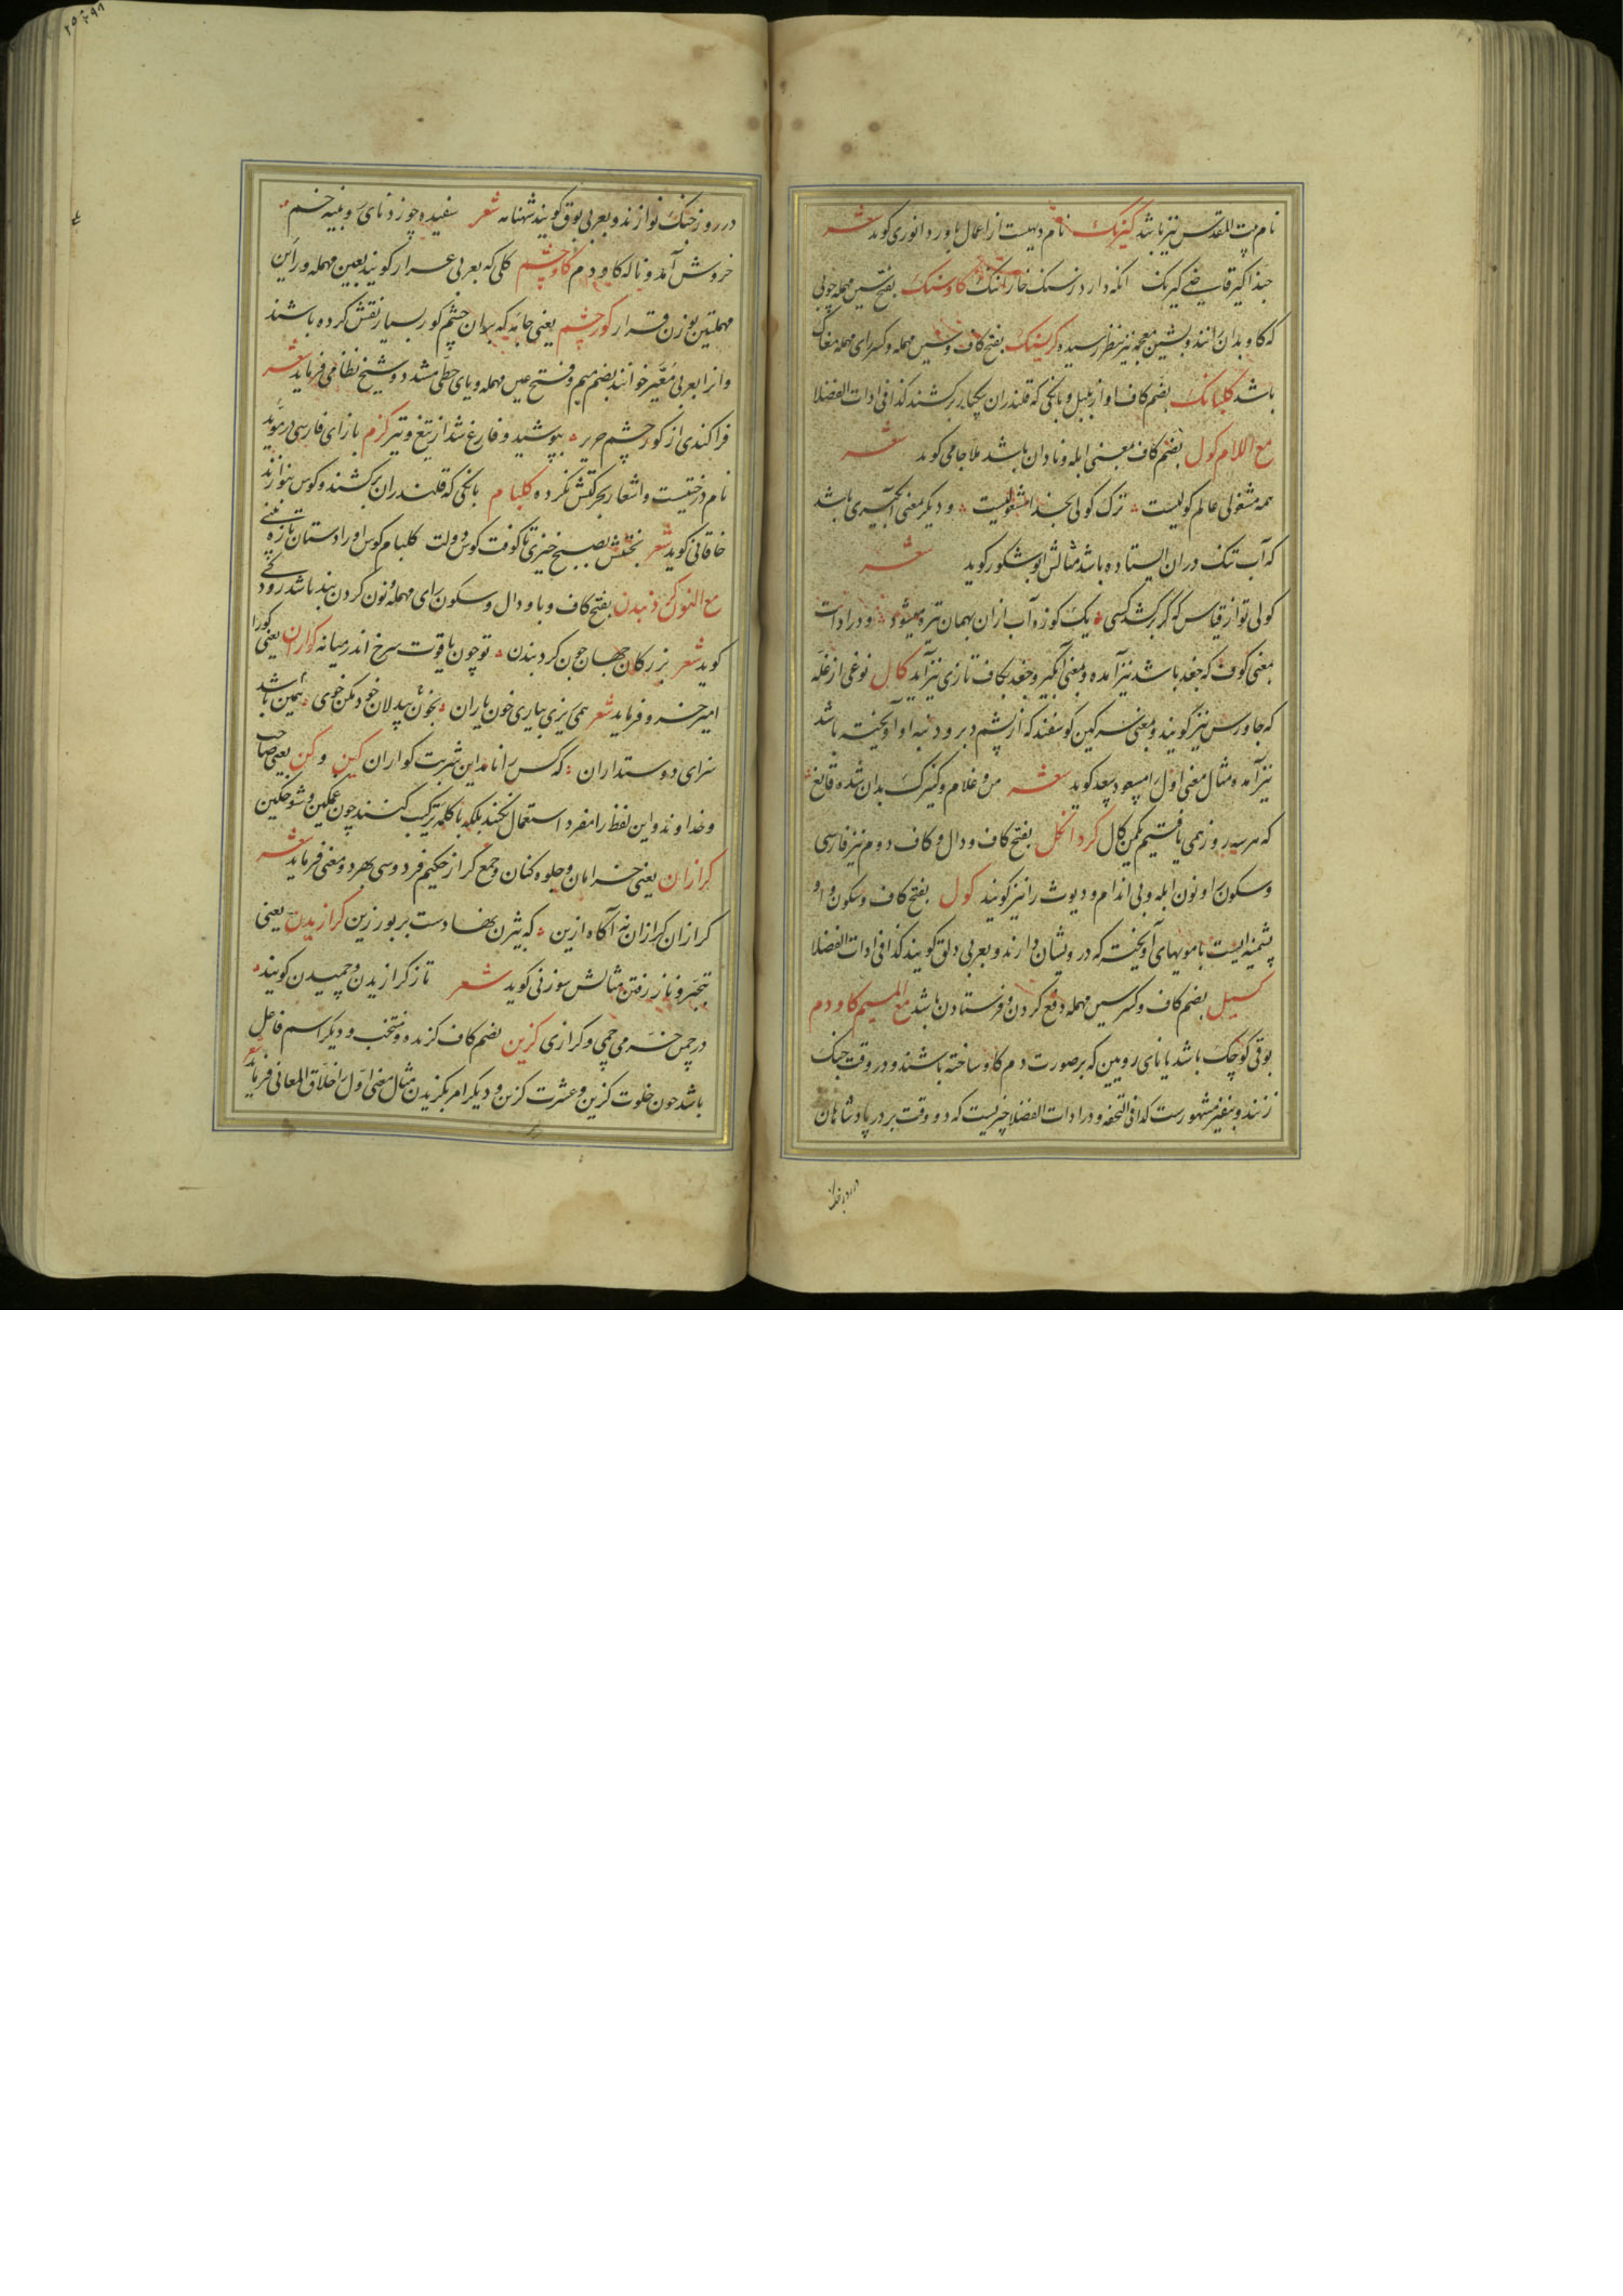 نام بیت المقدس نیز باشد کیرنک نام دهیست از اعمال باورد انوری کوید شعر
که کاو بدان رانند و بشین معجمه نیز بنظر رسیده کریشک بفتح کاف و سین مهمله و کسر رای مهمله مغاک
باشد کلبانک بضم کاف اواز بلبل و بانکی که قلندران یکبار برکشند کذا فی ادات الفضلا
مع اللام کول بضم کاف بمعنی ابله و نادان باشد ملا جامی کوید شعر
همه مشغولی عالم کولیست ترک کولی بخدا مشغولیست و دیکر معنی آبکیری باشد
که آب تنک در ان ایستاده باشد مثالش ابو شکور کوید شعر
کولی تو از قیاس که کر برکشد کسی یک کوزه آب ازان بهمان تیره میشود و در ادات
بمعنی کوف که جغد باشد نیز آمده و بمعنی آبکیر و جغد بکاف تازی نیز آید کال نوعی از غله
که جاورس نیز کویند و بمعنی سرکین کوسفند که از پشم دبر و دنبه او آویخته باشد
نیز آمده مثال معنی اول را مسعود سعد کوید شعر من و غلام و کنیزک بدان شده قانع
که هر سه روز همی یافتیم یکمن کال کردانکل بفتح کاف و دال و کاف دوم نیز فارسی
و سکون را و نون ابله و بی اندام و دیوث را نیز کویند کول بفتح کاف و سکون واو
پشمینه ایست با مویهای آویخته که درویشان دارند و بعربی دلق کویند کذا فی ادات الفضلا
کسیل بضم کاف و کسر سین مهمله دفع کردن و فرستادن باشد مع المیم کاودم
بوقی کوچک باشد یا نای رویین که بر صورت دم کاو ساخته باشند و در وقت جنک
زنند و بنفیر مشهورست کذا فی التحفه و در ادات الفضلا چیزیست که دو وقت بر در پادشاهان
در روز جنک نوازند و بعربی بوق کویند شهنامه شعر سفیده چو زد نای رویینه خم
خروش آمد و ناله کاودم کاوچشم کلی که بعربی عرار کویند بعین مهمله و راین
مهملتین بوزن قرار کورچشم یعنی جامه که بران چشم کور بسیار نقش کرده باشند
و انرا بعربی معیّر خوانند بضم میم و فتح عین مهمله و یای حطی مشدد و شیخ نظامی فرماید شعر
فراکندی از کورچشم حریر بپوشید و فارغ شد از تیغ و تیر کزم بازای فارسی در مؤید
نام درختیست و اشعار بحرکتش نکرده کلبام بانکی که قلندران برکشند و کوس نوازند
خاقانی کوید شعر بختش بصبح خیزی تا کوفت کوس دولت کلبام کوس اورا دستان تازه بینی
مع النون کردنبدن بفتح کاف و با و دال و سکون رای مهمله و نون کردن بند باشد رودکی
کوید شعر بزرکان جهان چون کردبندن تو چون یاقوت سرخ اندر میانه کواران یعنی کورا
امیر خسرو فرماید شعر همی ریزی بیاری خون یاران بخون بیدلان خود مکن خوی همین باشد
سزای دوستداران که کس را نامد این شربت کواران کین و کن یعنی صاحب
و خداوند و این لفظ را مفرد استعمال نکنند بلکه با کلمه ترکیب کنند چون غمکین و شوخکین
کرازان یعنی خرامان و جلوه کنان و جمع کراز حکیم فردوسی بهر دو معنی فرماید شعر
کرازان کرازان نه آکاه ازین که بیژن نهادست بر بور زین کرازیدن یعنی
بتبختر و ناز رفتن مثالش سوزنی کوید شعر تاز کرازیدن و چمیدن کویند
در چمن خرمی چمی و کرازی کزین بضم کاف کزیده و منتخب و دیکر اسم فاعل
باشد چون خلوت کزین و عشرت کزین و دیکر امر بکزیدن مثال معنی اول را خلاق المعانی فرماید شعر